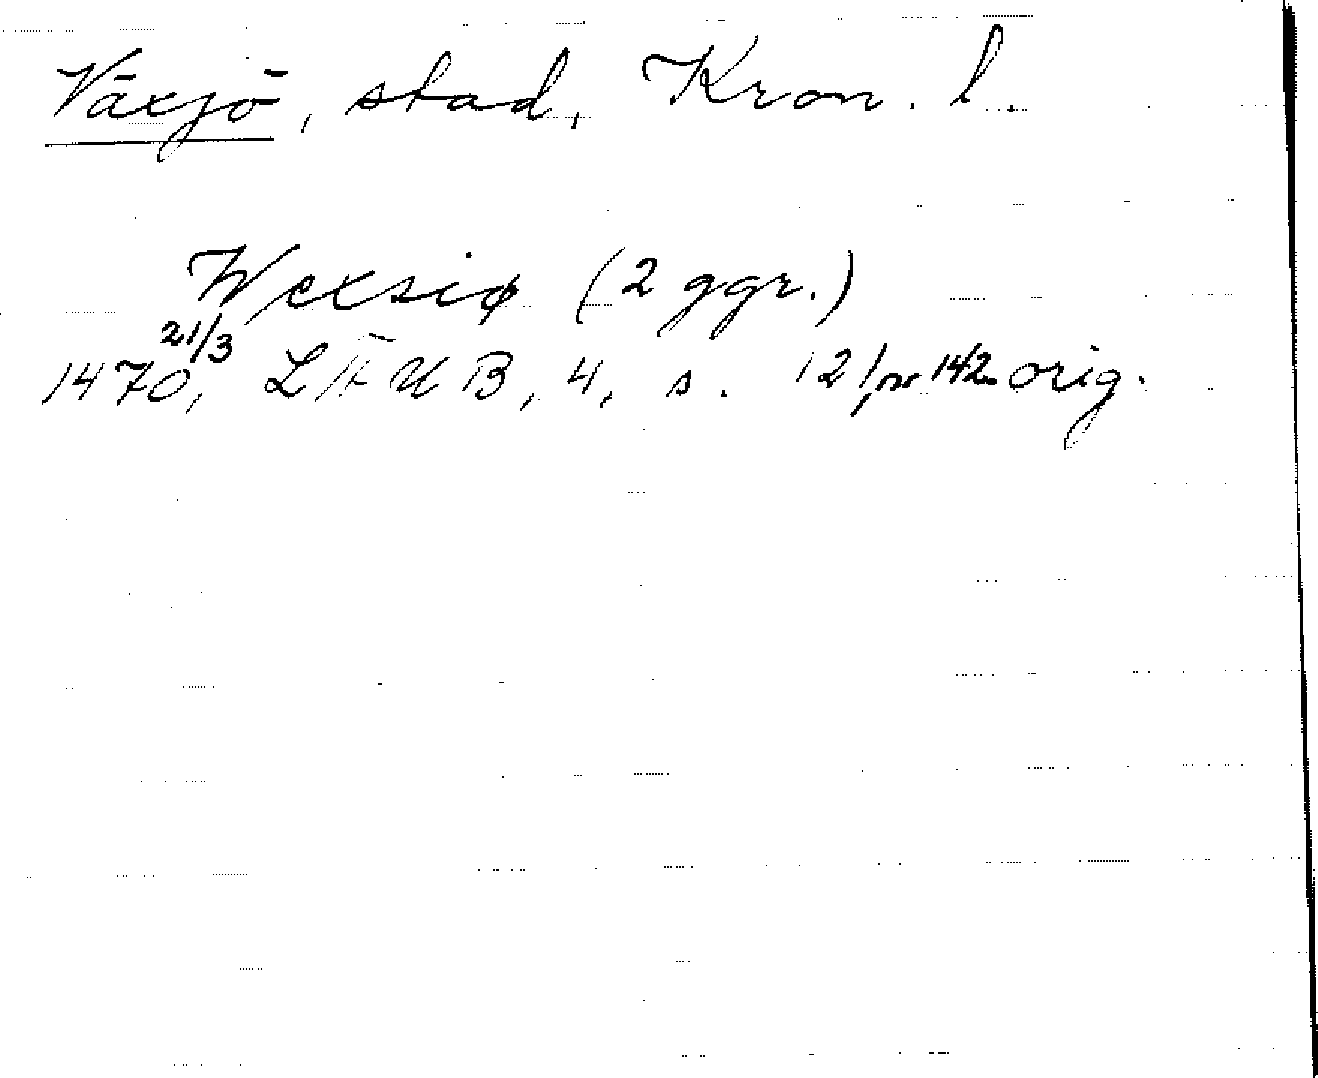 Växjö, stad, Kron. l.
Wexsiø (2 ggr.)
1470 21/3, LFUB, 4, s. 12/nr 142 orig.